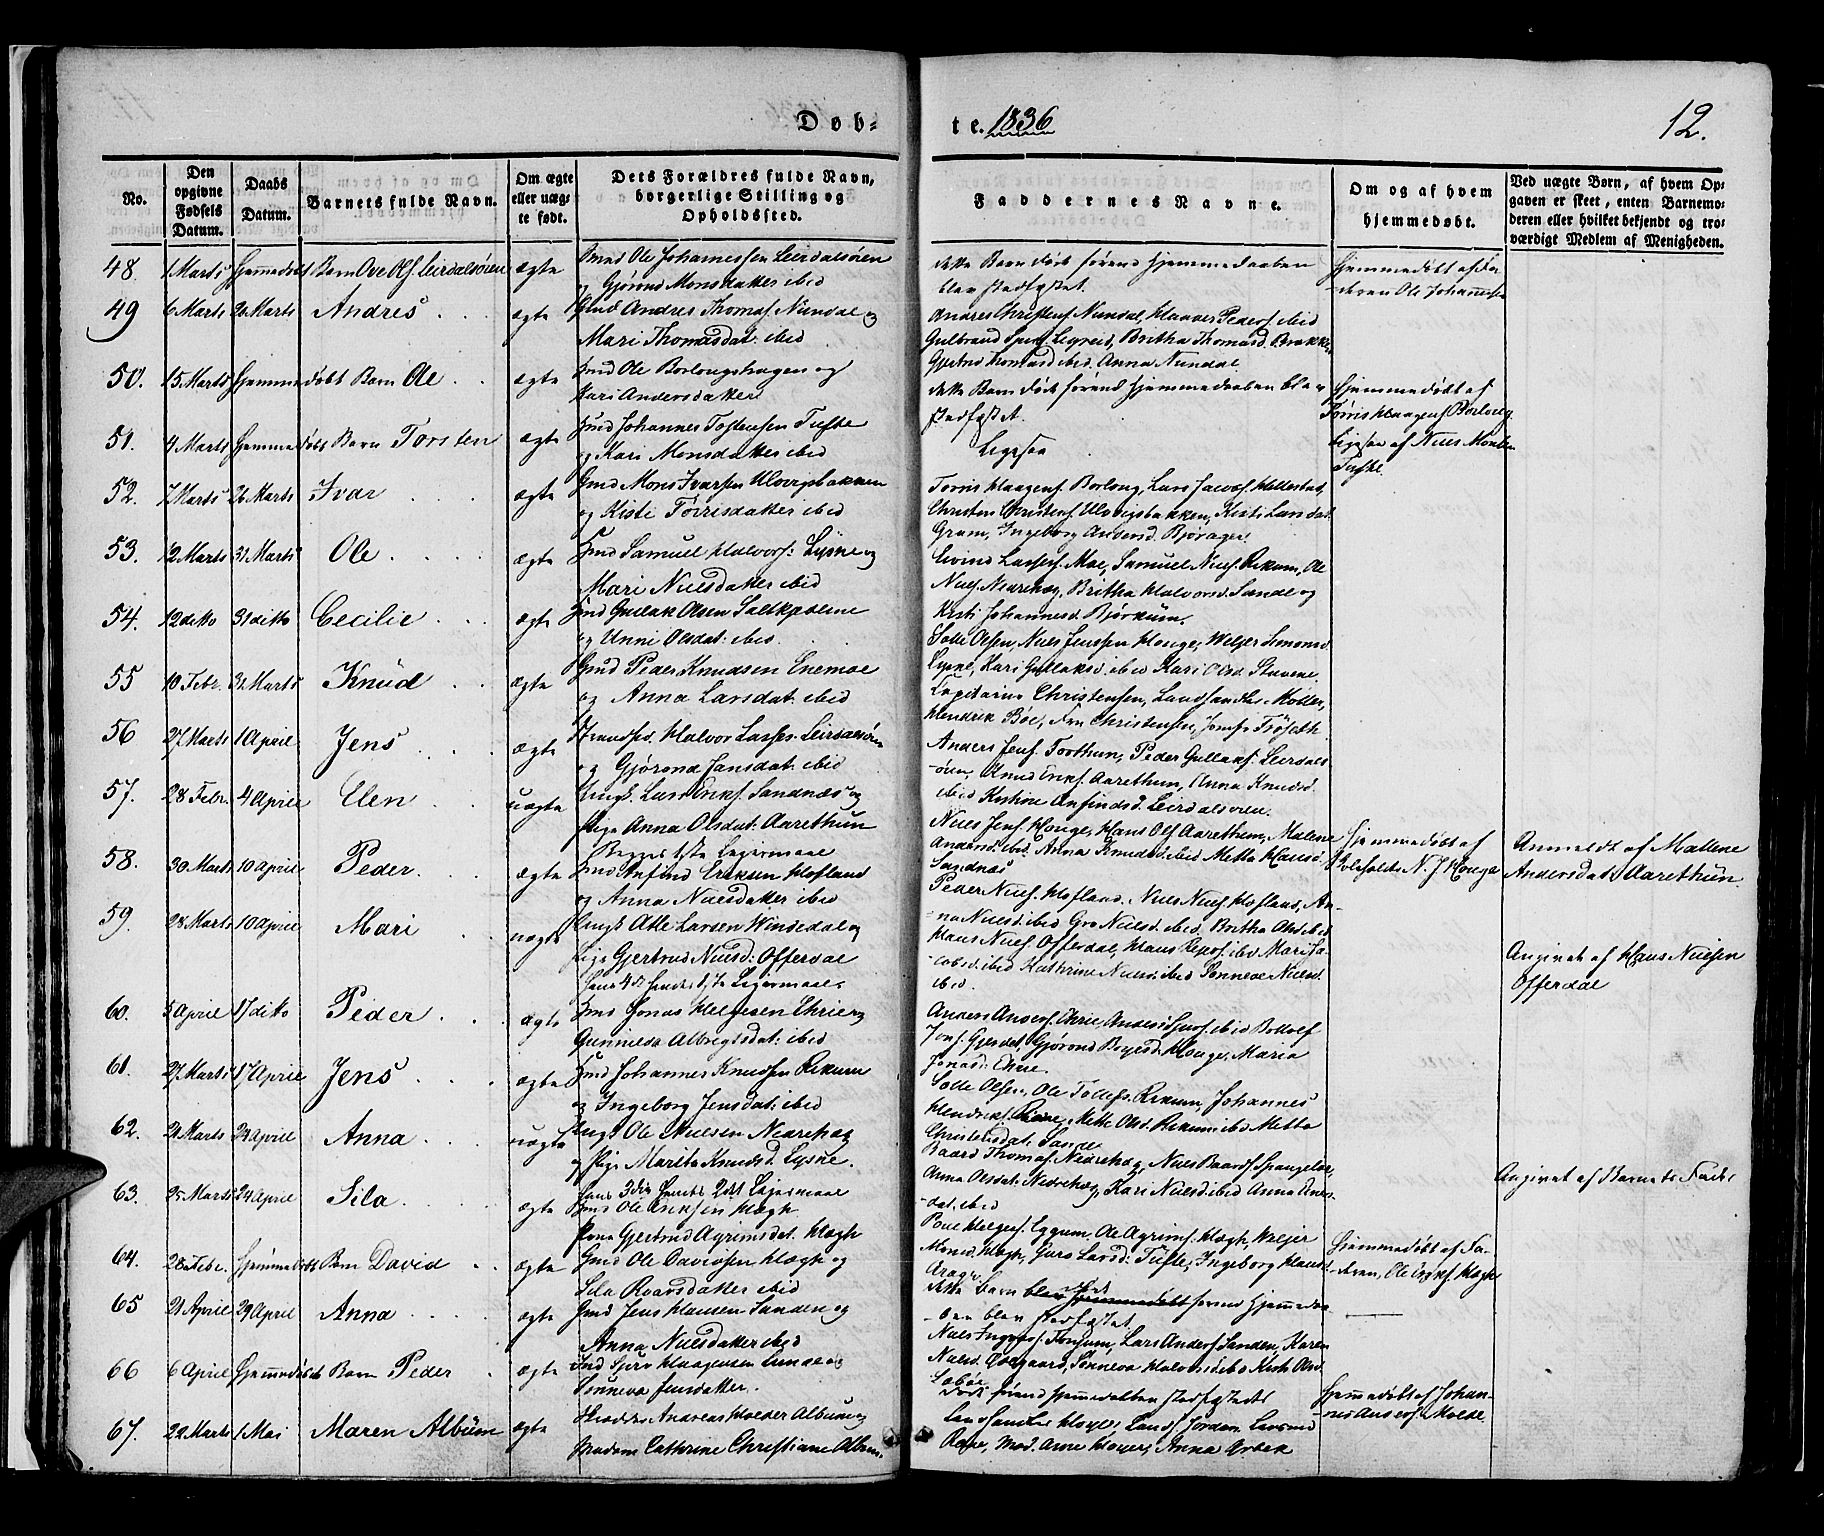 Døb-
te. 1836
12.
No.
Den opgivne Fødsels Datum.
Daabs Datum.
Barnets fulde Navn.
Om ægte eller uægte født.
Dets Forældres fulde Navn, borgerlige Stilling og Opholdssted.
Faddernes Navne.
Om og af hvem hjemmedøbt.
Ved uægte Børn, af hvem Opgaven er skeet, enten Barnemoderen eller hvilket bekjendt og troværdigt Medlem af Menigheden.
48. 1 Marts Hjemmedøbt Barn Ove Ols. Leirdalsøren ægte
Gmd Ole Johannessen Leirdalsøren
og Gjørond Monsdatter ibid
dette Barn døde førend Hjemmedaaben
blev stadfæstet.
Hjemmedøbt af Fa-
deren Ole Johannesen
49 6 Marts 26 Marts Andres ægte
Gmd Andres Thomas. Nundal og
Mari Thomasdat: ibid
Andres Christens. Nundal, Haaver Peders. ibid
Gulbrand Spers. Legreid, Britha Thomasd. Brække
Gjertrud Thomasd. ibid. Anna Nundal.
50. 15 Marts Hjemmedøbt Barn Ole ægte
Gmd Ole Borlaugshagen og
Kari Andersdatter
dette Barn døde førend Hjemmedaaben blev
stadfæstet.
Hjemmedøbt af
Torris Haagens. Borlaug
51. 4 Marts Hjemmedøbt Barn Torsten ægte
Gmd Johannes Tostensen Tufte
og Kari Monsdatter ibid
Ligesaa
Ligesaa af Niels Monsen
Tufte
52. 7 Marts 26 Marts Ivar ægte
Gmd Mons Ivarsen Ulvigsbakken
og Kisti Torrisdatter ibid
Torris Haagens. Borlaug, Lars Jacobs. Hellestad,
Christen Christens. Ulvigsbakken, Kisti Larsdat.
Gram, Ingeborg Andersd. Bjørager
53. 12 Marts 31 Marts Ole ægte
Gmd Samuel Halvors: Lysne og
Mari Nielsdatter ibid
Eivind Lasses. Moe, Samuel Niels. Rikum, Ole
Niels. Nedrehæg, Britha Halvorsd. Sande og
Kisti Johannesd. Bjørkum.
54. 12 ditto 31 ditto Cecilie ægte
Gmd Gullak Olsen Saltkjelene
og Unni Olsdat: ibid.
Tolle Olsen, Niels Jenssen Houge,
Lysne, Kari Gullaksd. ibid Kari Olsd. Stavene.
55 10 Febr. 31 Marts Knud ægte
Gmd Peder Knudsen Enemoe
og Anna Larsdat: ibid
Capitaine Christensen, Landhandler Møller,
Hendrik Böe, Christensen,
56 27 Marts 1 April Jens ægte
Strandsd. Halvor Lasses. Leirdalsøren
og Gjørond Jansdat: ibid
Anders Jens. Torthun, Peder Gullaks. Leirdals-
øren, Knud Eriks. Aarethun, Anna Knudsd.
ibid Kistine Anfindsd. Leirdalsøren.
57. 28 Febr. 4 April Elen uægte
Ungk. Lars Eriks. Sandnæs og
Pige Anna Olsdat: Aarethun
Begges 1ste Leiermaal
Niels Jens. Houge, Hans Ols. Aarethun, Malene
Andersd. ibid. Anna Knudsd. ibid Metta Hansd.
Sandnæs
Hjemmedøbt af
Skoleholder N. J. Houge
Anmeldt af Mallene
Andersdat. Aarethun.
58. 30 Marts 10 April Peder ægte
Gmd Anfind Eriksen Hofland
og Anna Nielsdatter ibid
Peder Niels. Hofland, Niels Niels. Hofland, An-
na Nielsd. ibid Gro Nielsd. ibid. Britha Olsd. ibid
59. 28 Marts 10 April Mari uægte
Ungk Atle Larsen Vindedal og
Pige Gjertrud Nielsd: Offerdal
hans 4de hendes 1ste Leiermaal.
Hans Niels. Offerdal, Hans ibid Mari Ja-
cobsd. ibid Kathrine Nielsd. ibid Sønneva Nielsd.
ibid.
Angivet af Hans Nielsen
Offerdal
60. 5 April 17 ditto Peder ægte
Gmd Jonas Helgesen Ehrie og
Gunnilda Albrigtsdat: ibid
Anders Anders. Ehrie, Anders Spers. ibid Bottolf
Jons. Gjerdet, Gjørond Boyesd. Houge, Maria
Jonasd: Ehrie.
61. 27 Marts 17 April Jens ægte
Gmd Johannes Knudsen Rikum
og Ingeborg Jensdat: ibid
Tolle Olsen, Ole Tolles. Rikum, Johannes
Hendriks. Mette Olsd. Rikum ibid Metta
Christensdat: Sande
62. 21 Marts 24 April Anna uægte
Ungk Ole Nielsen Nedrehæg
og Pige Marita Knudsd. Lysne.
hans 3die hendes 2det Leiermaal
Baard Thomas. Nedrehæg, Niels Baards. Spangelo,
Anna Olsdat: Nedrehæg, Kari Nielsd. ibid Anna
dat. ibid
Angivet af Barnets Fader
63. 25 Marts 24 April Sila ægte
Gmd Ole Eriksen Hægh
Kona Gjertrud Agrimsdat. Hægh
Povel Helges. Eggum, Ole Agrims. Hægh,
Monsd. Hægh, Guro Larsd: Tufte, Ingeborg Hansd.
Hjemmedøbt af Fa-
deren, Ole Eriks. Hægh
64. 28 Febr. Hjemmedøbt Barn David ægte
Gmd Ole Davidsen Hægh og
Sila Roarsdatter ibid
dette Barn blev døde førend Hjemmeda-
ben blev stadfæstet
65 21 April 29 April Anna ægte
Gmd Jens Hansen Sanden og
Anna Nielsdatter ibid
Niels Ingvars. Tonjum, Lars Anders. Sanden, Karen
Nielsd. Ødegaard, Sønneva Halvorsd. ibid Kisti Olsd.
66 6 April Hjemmedøbt Barn Peder ægte
Gmd Sjur Haagensen Lunde og
Sønneva Jensdatter.
Døde førend Hjemmedaaben stadfæstedes
Hjemmedøbt af Johan-
nes Anders. Molde
67. 22 Marts 1 Mai Maren Album ægte
Skrædder Andreas Holder Album og
Madam Cathrine Christiane Album.
Landhandler Høyer, Landh. Jordan, Larsine
Rane, Mad. Høyer, Anna Arbek